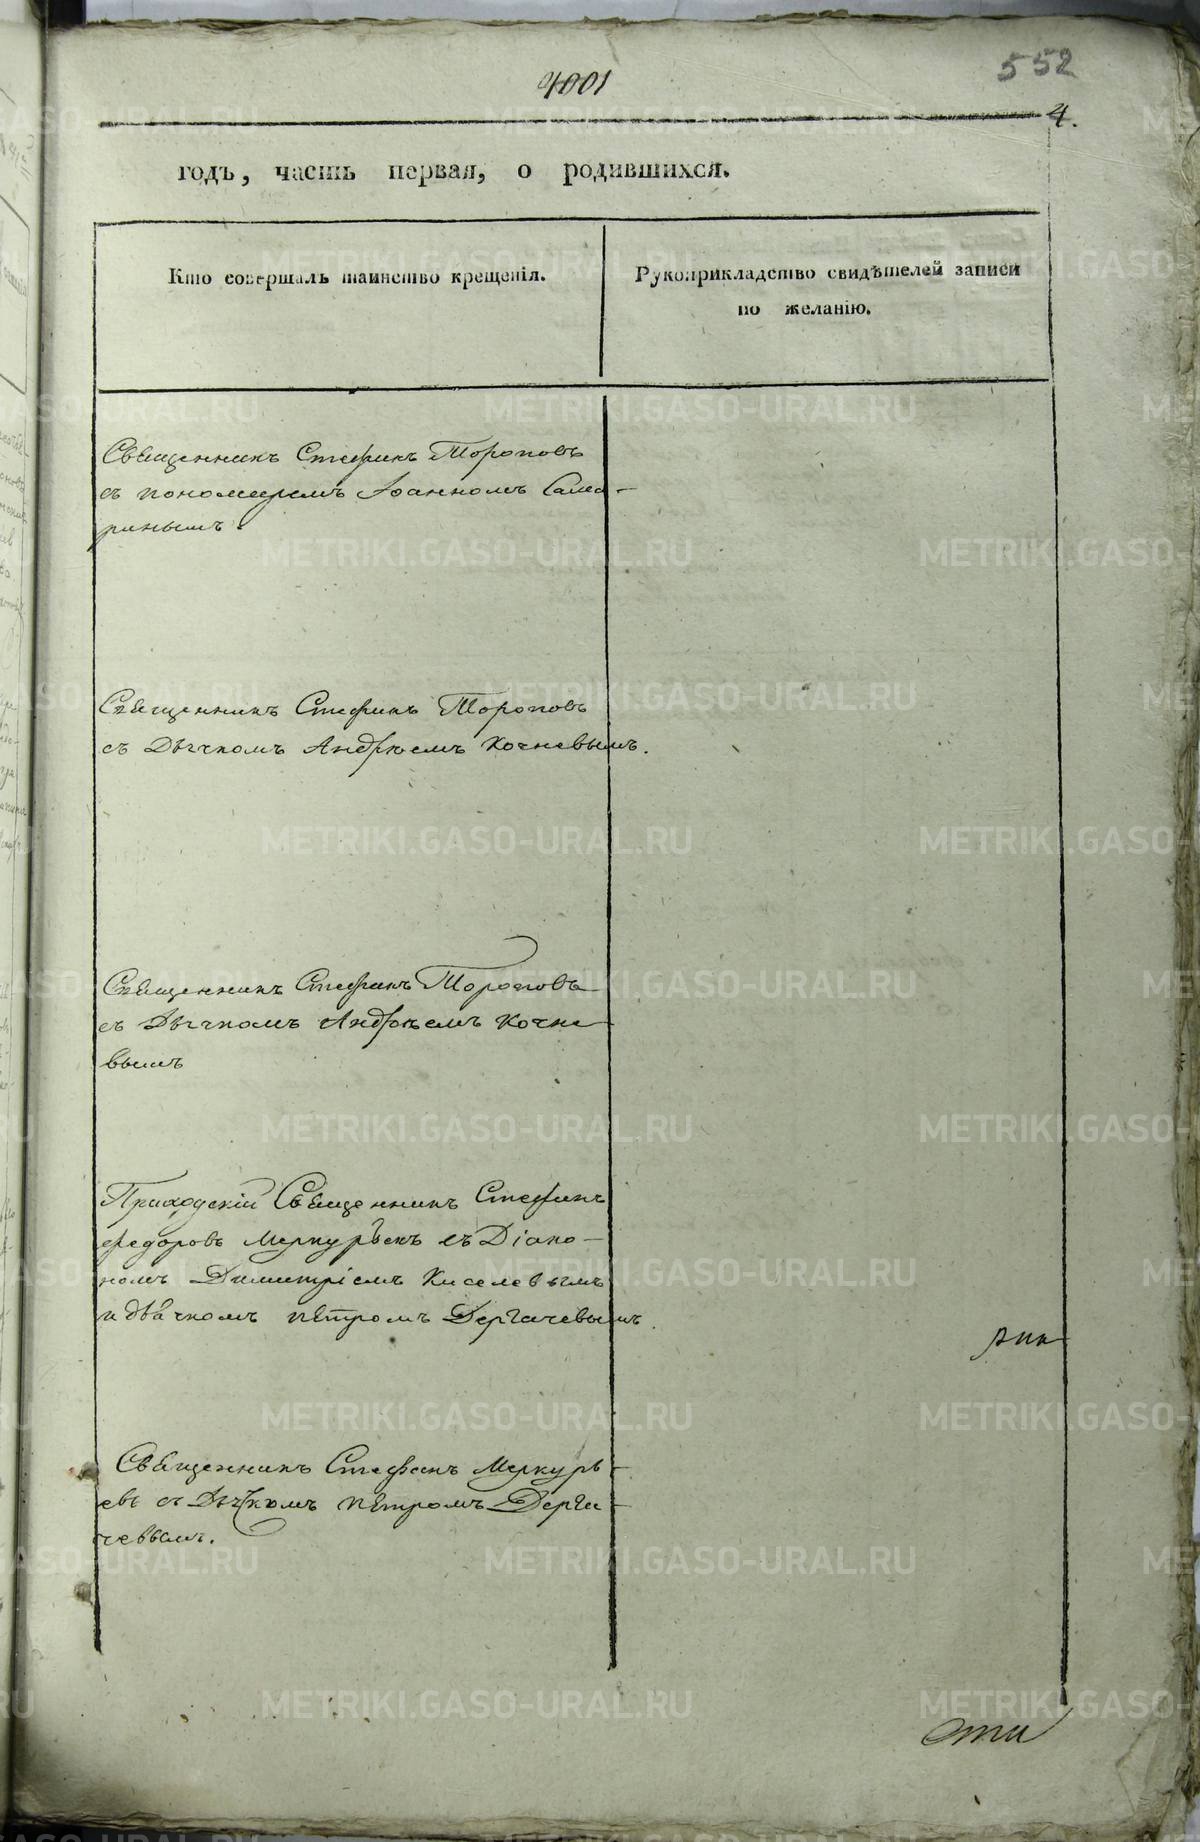 552
4001
4.
годъ, часть первая, о родившихся.
Кто совершалъ таинство крещенія.
Рукоприкладство свидѣтелей записи
по желанію.
Священникъ Стефанъ Тороповъ
съ пономаремъ Іоанномъ Сама-
ринымъ.
Священникъ Стефанъ Тороповъ
съ Дьячкомъ Андреемъ Кочневымъ.
Священникъ Стефанъ Тороповъ
съ Дьячкомъ Андреемъ Кочне
вымъ
Приходскій Священникъ Стефанъ
Федоровъ Меркурьевъ съ Діако-
номъ Димитріемъ Киселевымъ
и дьячкомъ Петромъ Дергачевымъ.
Священникъ Стефанъ Меркурь-
евъ съ Дьячкомъ Петромъ Дерга-
чевымъ.
METRIKI.GASO-URAL.RU